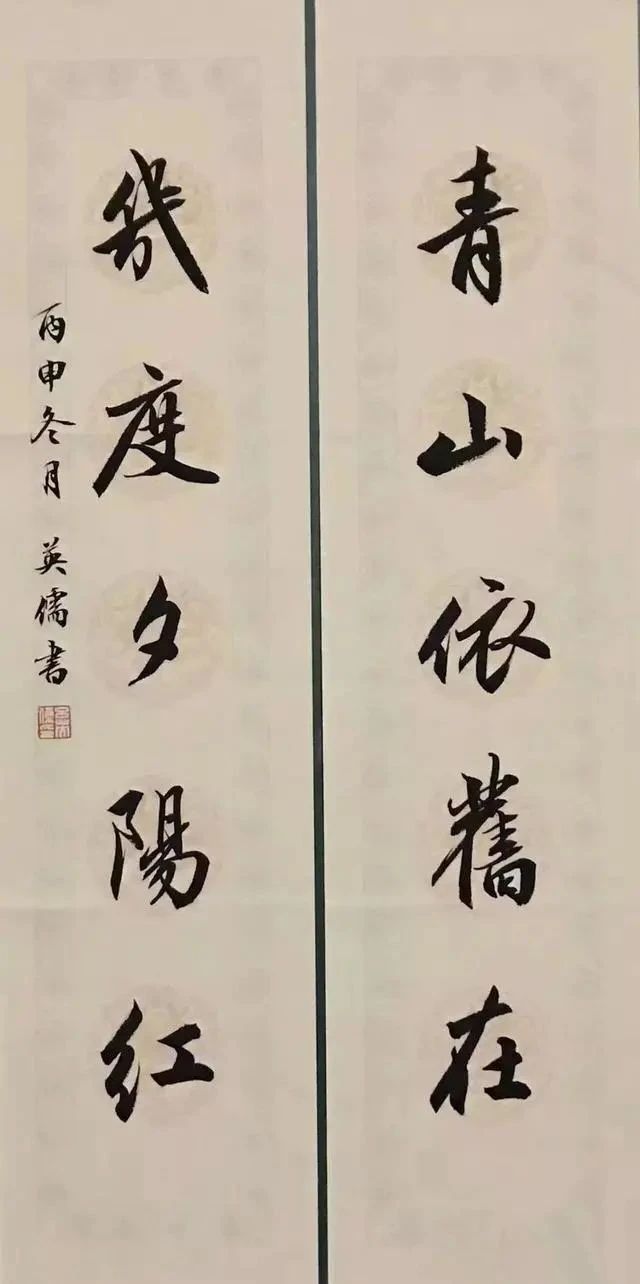 青山依舊在
幾度夕陽红
丙申冬月 英儒書